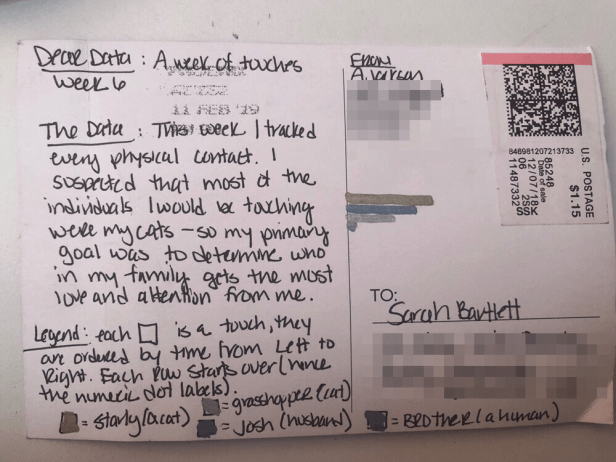 Dear Data: A week of touches
Week 6
11 FEB '19
The Data: This week I tracked
every physical contact. I
suspected that most of the
individuals I would be touching
were my cats - so my primary
goal was to determine who
in my family gets the most
love and attention from me.
Legend: each □ is a touch, they
are ordered by time from left to
right. Each row starts over (hence
the numeric dot labels).
= starly (a cat)
= grasshopper (cat)
= Josh (husband)
= BROTHER (a human)
FROM
A. Larson
TO:
Sarah Bartlett
U.S. POSTAGE
$1.15
846981207213733
85248
Date of sale
12/07/18
06 2SSK
11487332